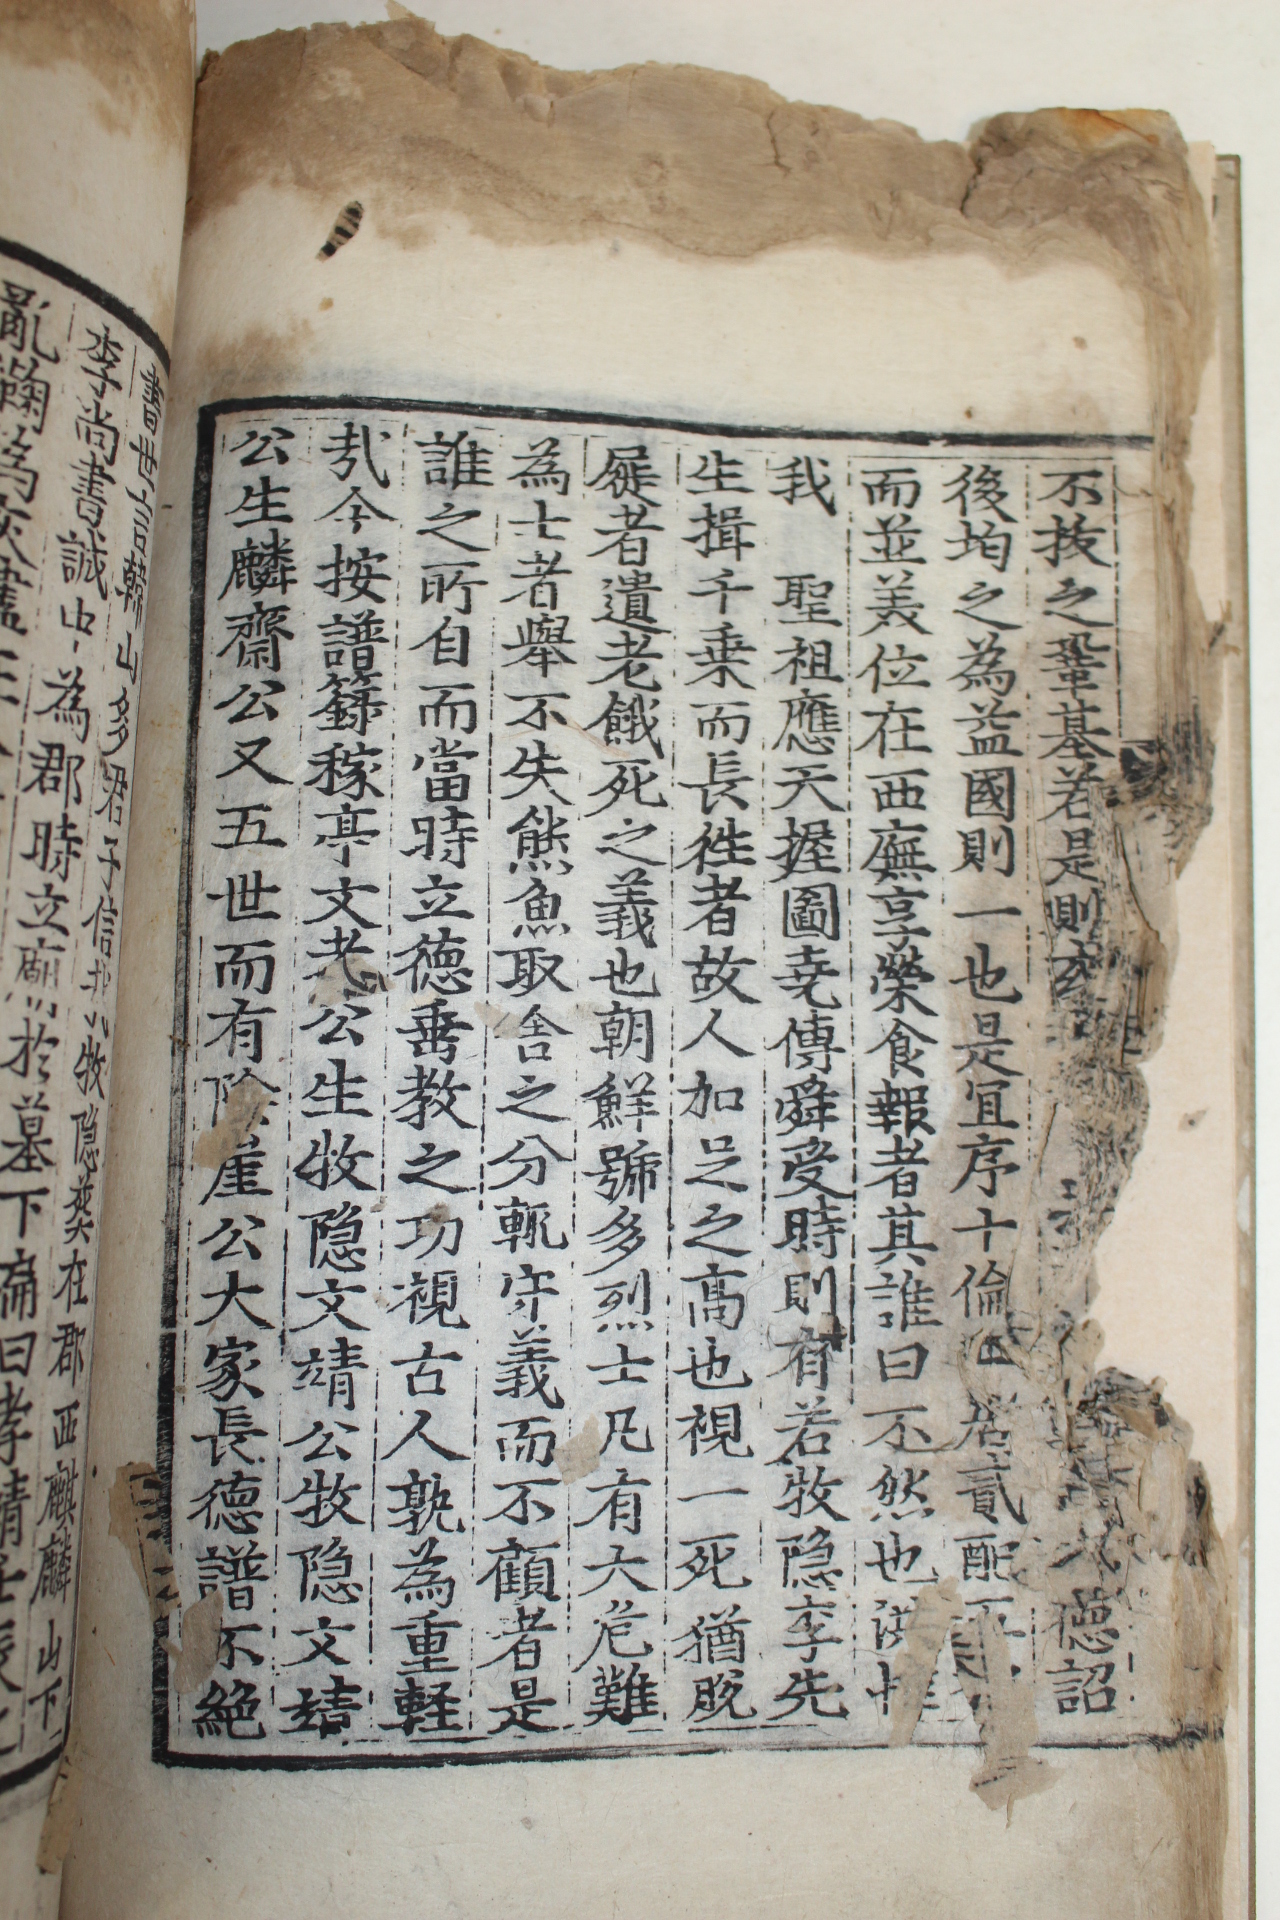 不拔之鞏基若是則玄 德詔
後均之為益國則一也是宜序十倫 貳配
而並美位在西廡享榮食報者其誰曰不然也
我 聖祖應天握圖堯傳舜受時則有若牧隠李先
生揖千乗而長徃者故人加足之高也視一死猶脫
屣者遺老餓死之義也朝鮮號多烈士凡有大危難
為士者舉不失熊魚取舍之分輒守義而不顧者是
誰之所自而當時立德垂教之功視古人孰為重軽
㢤今按譜籙稼亭文孝公生牧隠文靖公牧隠文靖
公生麟齋公又五世而有陰崖公大家長德譜不絶
書世言韓山多君子信哉 牧隠葬在郡西麒麟山下
李尚書諴中為郡時立廟於墓下扁曰孝靖壬辰之
亂鞠為灰